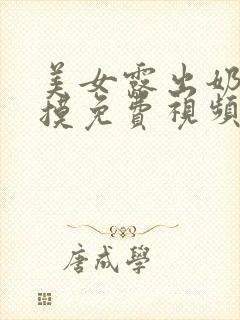 美女露出奶
摸免費視頻
唐成學